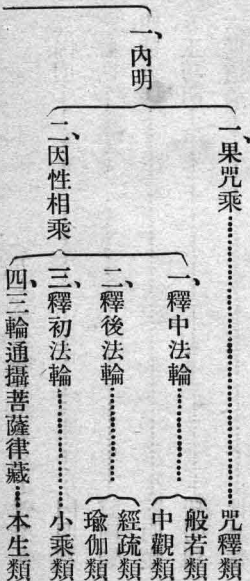 一、內明
一、果咒乘……咒釋類
二、因性相乘
一、釋中法輪……般若類
中觀類
二、釋後法輪……經疏類
瑜伽類
三、釋初法輪……小乘類
四、三輪通攝菩薩律藏……本生類